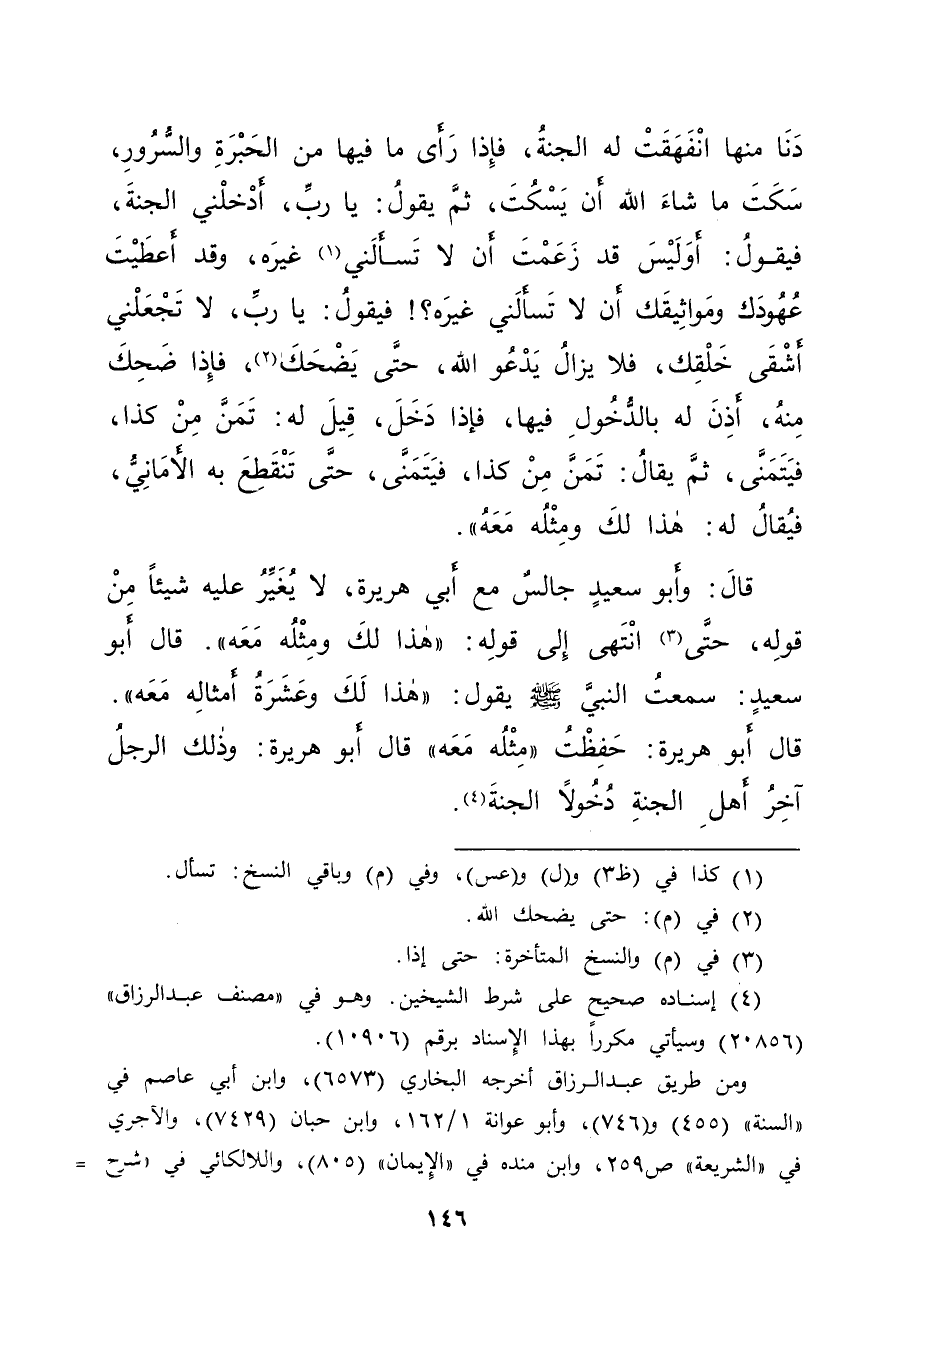 دَنَا منها انْفَهَقَتْ له الجنةُ، فإِذا رَأَى ما فيها من الحَبْرَةِ والسُّرُورِ،
سَكَتَ ما شاءَ الله أن يَسْكُتَ، ثمَّ يقولُ: يا ربِّ، أَدْخلْني الجنةَ،
فيقـولُ: أَوَلَيْسَ قد زَعَمْتَ أن لا تَسـأَلَني(١) غيرَه، وقد أَعطَيْتَ
عُهُودَك ومَواثِيقَك أن لا تَسأَلَني غيرَه؟! فيقولُ: يا ربِّ، لا تَجْعَلْني
أَشْقَى خَلْقِك، فلا يزالُ يَدْعُو الله، حتَّى يَضْحَكَ(٢)، فإِذا ضَحِكَ
مِنهُ، أَذِنَ له بالدُّخُولِ فيها، فإذا دَخَلَ، قِيلَ له: تَمَنَّ مِنْ كذا،
فيَتَمَنَّى، ثمَّ يقالُ: تَمَنَّ مِنْ كذا، فيَتَمَنَّى، حتَّى تَنْقَطِعَ به الأَمَانِيُّ،
فيُقالُ له: هٰذا لكَ ومِثْلُه مَعَهُ».
قالَ: وأَبو سعيدٍ جالسٌ مع أَبي هريرة، لا يُغَيِّرُ عليه شيئاً مِنْ
قولِه، حتَّى(٣) انْتَهى إِلى قولِه: «هٰذا لكَ ومِثْلُه مَعَه». قال أَبو
سعيدٍ: سمعتُ النبيَّ ﷺ يقول: «هٰذا لَكَ وعَشَرَةُ أَمثالِه مَعَه».
قال أَبو هريرة: حَفِظْتُ «مِثْلُه مَعَه» قال أَبو هريرة: وذٰلك الرجلُ
آخِرُ أَهلِ الجنةِ دُخُولاً الجنةَ(٤).
(١) كذا في (ظ٣) و(ل) و(عس)، وفي (م) وباقي النسخ: تسأل.
(٢) في (م): حتى يضحك الله.
(٣) في (م) والنسخ المتأخرة: حتى إذا.
(٤) إسنـاده صحيح على شرط الشيخين. وهـو في «مصنف عبـدالرزاق»
(٢٠٨٥٦) وسيأتي مكرراً بهذا الإسناد برقم (١٠٩٠٦).
ومن طريق عبـدالـرزاق أخرجه البخاري (٦٥٧٣)، وابن أبي عاصم في
«السنة» (٤٥٥) و(٧٤٦)، وأبو عوانة ١٦٢/١، وابن حبان (٧٤٢٩)، والآجري
في «الشريعة» ص٢٥٩، وابن منده في «الإيمان» (٨٠٥)، واللالكائي في «شرح =
١٤٦